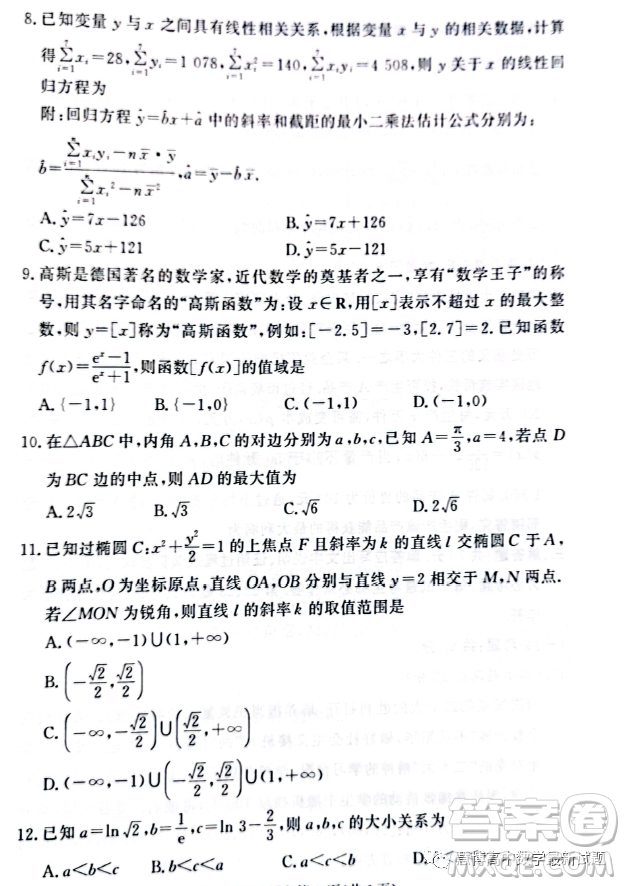 8.已知变量 y 与 x 之间具有线性相关关系,根据变量 x 与 y 的相关数据,计算
得∑_{i=1}^{7}x_i=28,∑_{i=1}^{7}y_i=1 078,∑_{i=1}^{7}x_i^2=140,∑_{i=1}^{7}x_iy_i=4 508,则 y 关于 x 的线性回
归方程为
附:回归方程 ŷ=b̂x+â 中的斜率和截距的最小二乘法估计公式分别为:
b̂=(∑_{i=1}^{n}x_iy_i-n x̄·ȳ)/(∑_{i=1}^{n}x_i^2-n x̄^2),â=ȳ-b̂x̄.
A.ŷ=7x-126 B.ŷ=7x+126
C.ŷ=5x+121 D.ŷ=5x-121
9.高斯是德国著名的数学家,近代数学的奠基者之一,享有“数学王子”的称
号,用其名字命名的“高斯函数”为:设 x∈R,用[x]表示不超过 x 的最大整
数,则 y=[x]称为“高斯函数”,例如:[-2.5]=-3,[2.7]=2.已知函数
f(x)=(e^x-1)/(e^x+1),则函数[f(x)]的值域是
A.{-1,1} B.{-1,0} C.(-1,1) D.(-1,0)
10.在△ABC 中,内角 A,B,C 的对边分别为 a,b,c,已知 A=π/3,a=4,若点 D
为 BC 边的中点,则 AD 的最大值为
A.2√3 B.√3 C.√6 D.2√6
11.已知过椭圆 C:x^2+y^2/2=1 的上焦点 F 且斜率为 k 的直线 l 交椭圆 C 于 A,
B 两点,O 为坐标原点,直线 OA,OB 分别与直线 y=2 相交于 M,N 两点.
若∠MON 为锐角,则直线 l 的斜率 k 的取值范围是
A.(-∞,-1)∪(1,+∞)
B.(-√2/2,√2/2)
C.(-∞,-√2/2)∪(√2/2,+∞)
D.(-∞,-1)∪(-√2/2,√2/2)∪(1,+∞)
12.已知 a=ln√2,b=1/e,c=ln 3-2/3,则 a,b,c 的大小关系为
A.a<b<c B.a<c<b C.c<a<b
答案卷